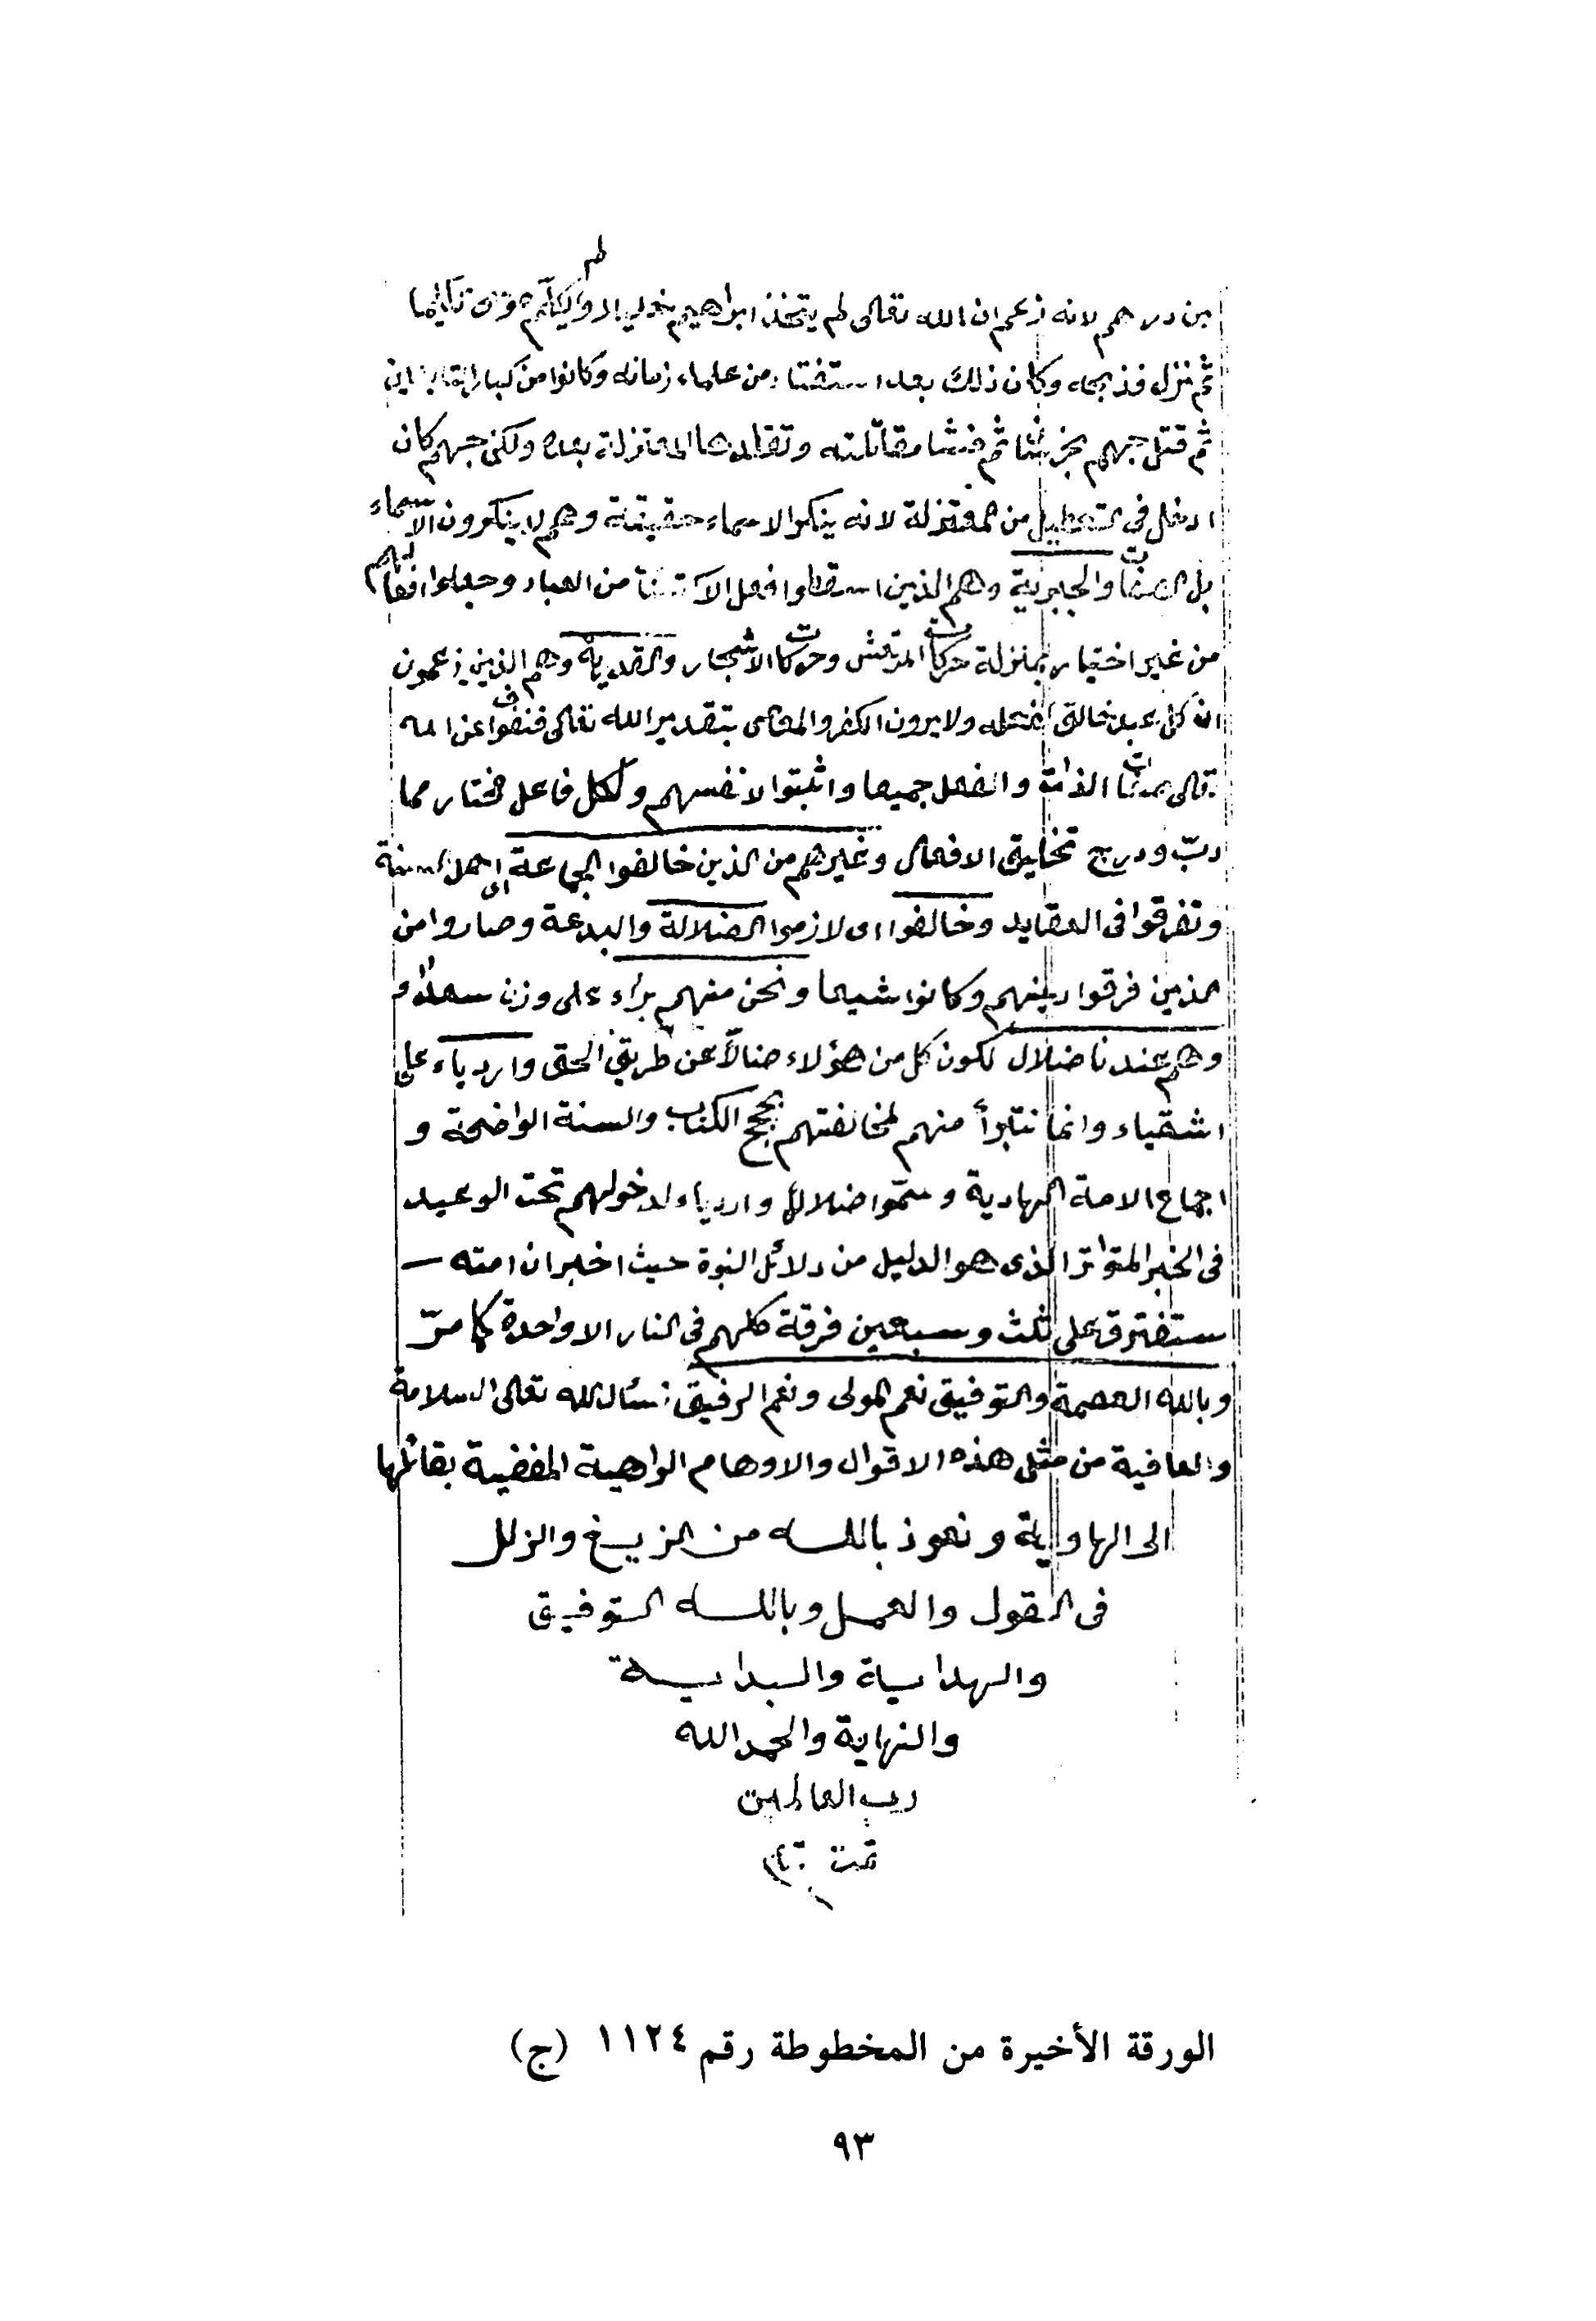 بن درهم لانه زعم ان الله تعالى لم يتخذ ابراهيم خليلا ولم يكلّم موسى تكليما
ثم نزل فذبحه وكان ذلك بعد استفتاء من علماء زمانه وكانوا من كبار التابعين
ثم قتل جهم ثم فشا مقالته وتقلدها المعتزلة بعده ولكن جهم كان
ادخل فى التعطيل من المعتزلة لانه ينكر الاسماء حقيقة وهم لا ينكرون الاسماء
بل الصفات والجبرية وهم الذين اسقطوا فعل من العباد وجعلوا افعالهم
من غير اختيار بمنزلة حركات المرتعش وحركات الاشجار والقدرية وهم الذين يزعمون
ان كل عبد خالق لفعله ولا يرون الكفر والمعاصى بتقدير الله تعالى فنفوا عن الله
تعالى صفات الذات والفعل جميعا واثبتوا لانفسهم ولكل فاعل مختار مما
دبّ ودرج تخليق الافعال وغيرهم من الذين خالفوا الجماعة اى اهل السنة
وتفرقوا فى العقايد وخالفوا اى لازموا الضلالة والبدعة وصاروا من
الذين فرقوا دينهم وكانوا شيعا ونحن منهم براء على وزن سعداء
وهم عندنا ضلال لكون كل من هؤلاء ضالّا عن طريق الحق واردياء على
اشقياء وانما نتبرأ منهم لمخالفتهم بحجج الكتاب والسنة الواضحة و
اجماع الامة الهادية وسمّوا ضلالا واردياء لدخولهم تحت الوعيد
فى الخبر المتواتر الذى هو الدليل من دلائل النبوة حيث اخبر ان امته
ستفترق على ثلث وسبعين فرقة كلهم فى النار الا واحدة كما مرّ
وبالله العصمة والتوفيق نعم المولى ونعم الرفيق نسئال الله تعالى السلامة
والعافية من مثل هذه الاقوال والاوهام الواهية المفضية بقائلها
الى الهاوية ونعوذ بالله من الزيغ والزلل
فى القول والعمل وبالله التوفيق
والهداية والبداية
والنهاية والحمد الله
رب العالمين
تمت
الورقة الأخيرة من المخطوطة رقم ١١٢٤ (ج)
٩٣